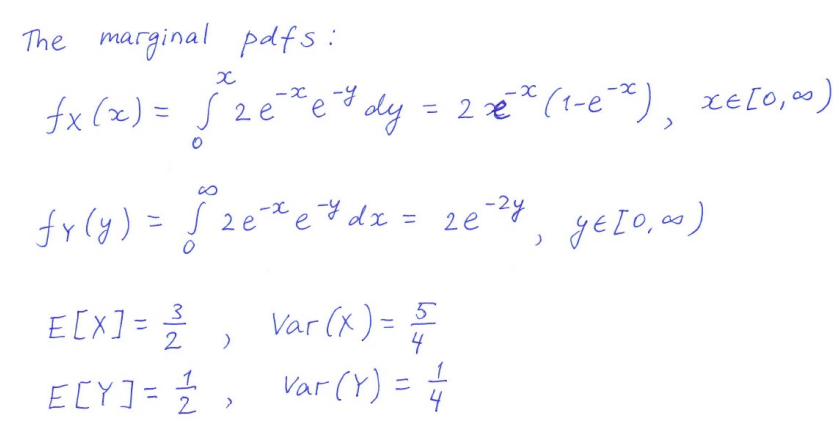 The marginal pdfs :
fX(x) = ∫₀ˣ 2e⁻ˣe⁻ʸ dy = 2e⁻ˣ(1-e⁻ˣ), x∈[0,∞)
fY(y) = ∫₀^∞ 2e⁻ˣe⁻ʸ dx = 2e⁻²ʸ, y∈[0,∞)
E[X] = 3/2, Var(X) = 5/4
E[Y] = 1/2, Var(Y) = 1/4